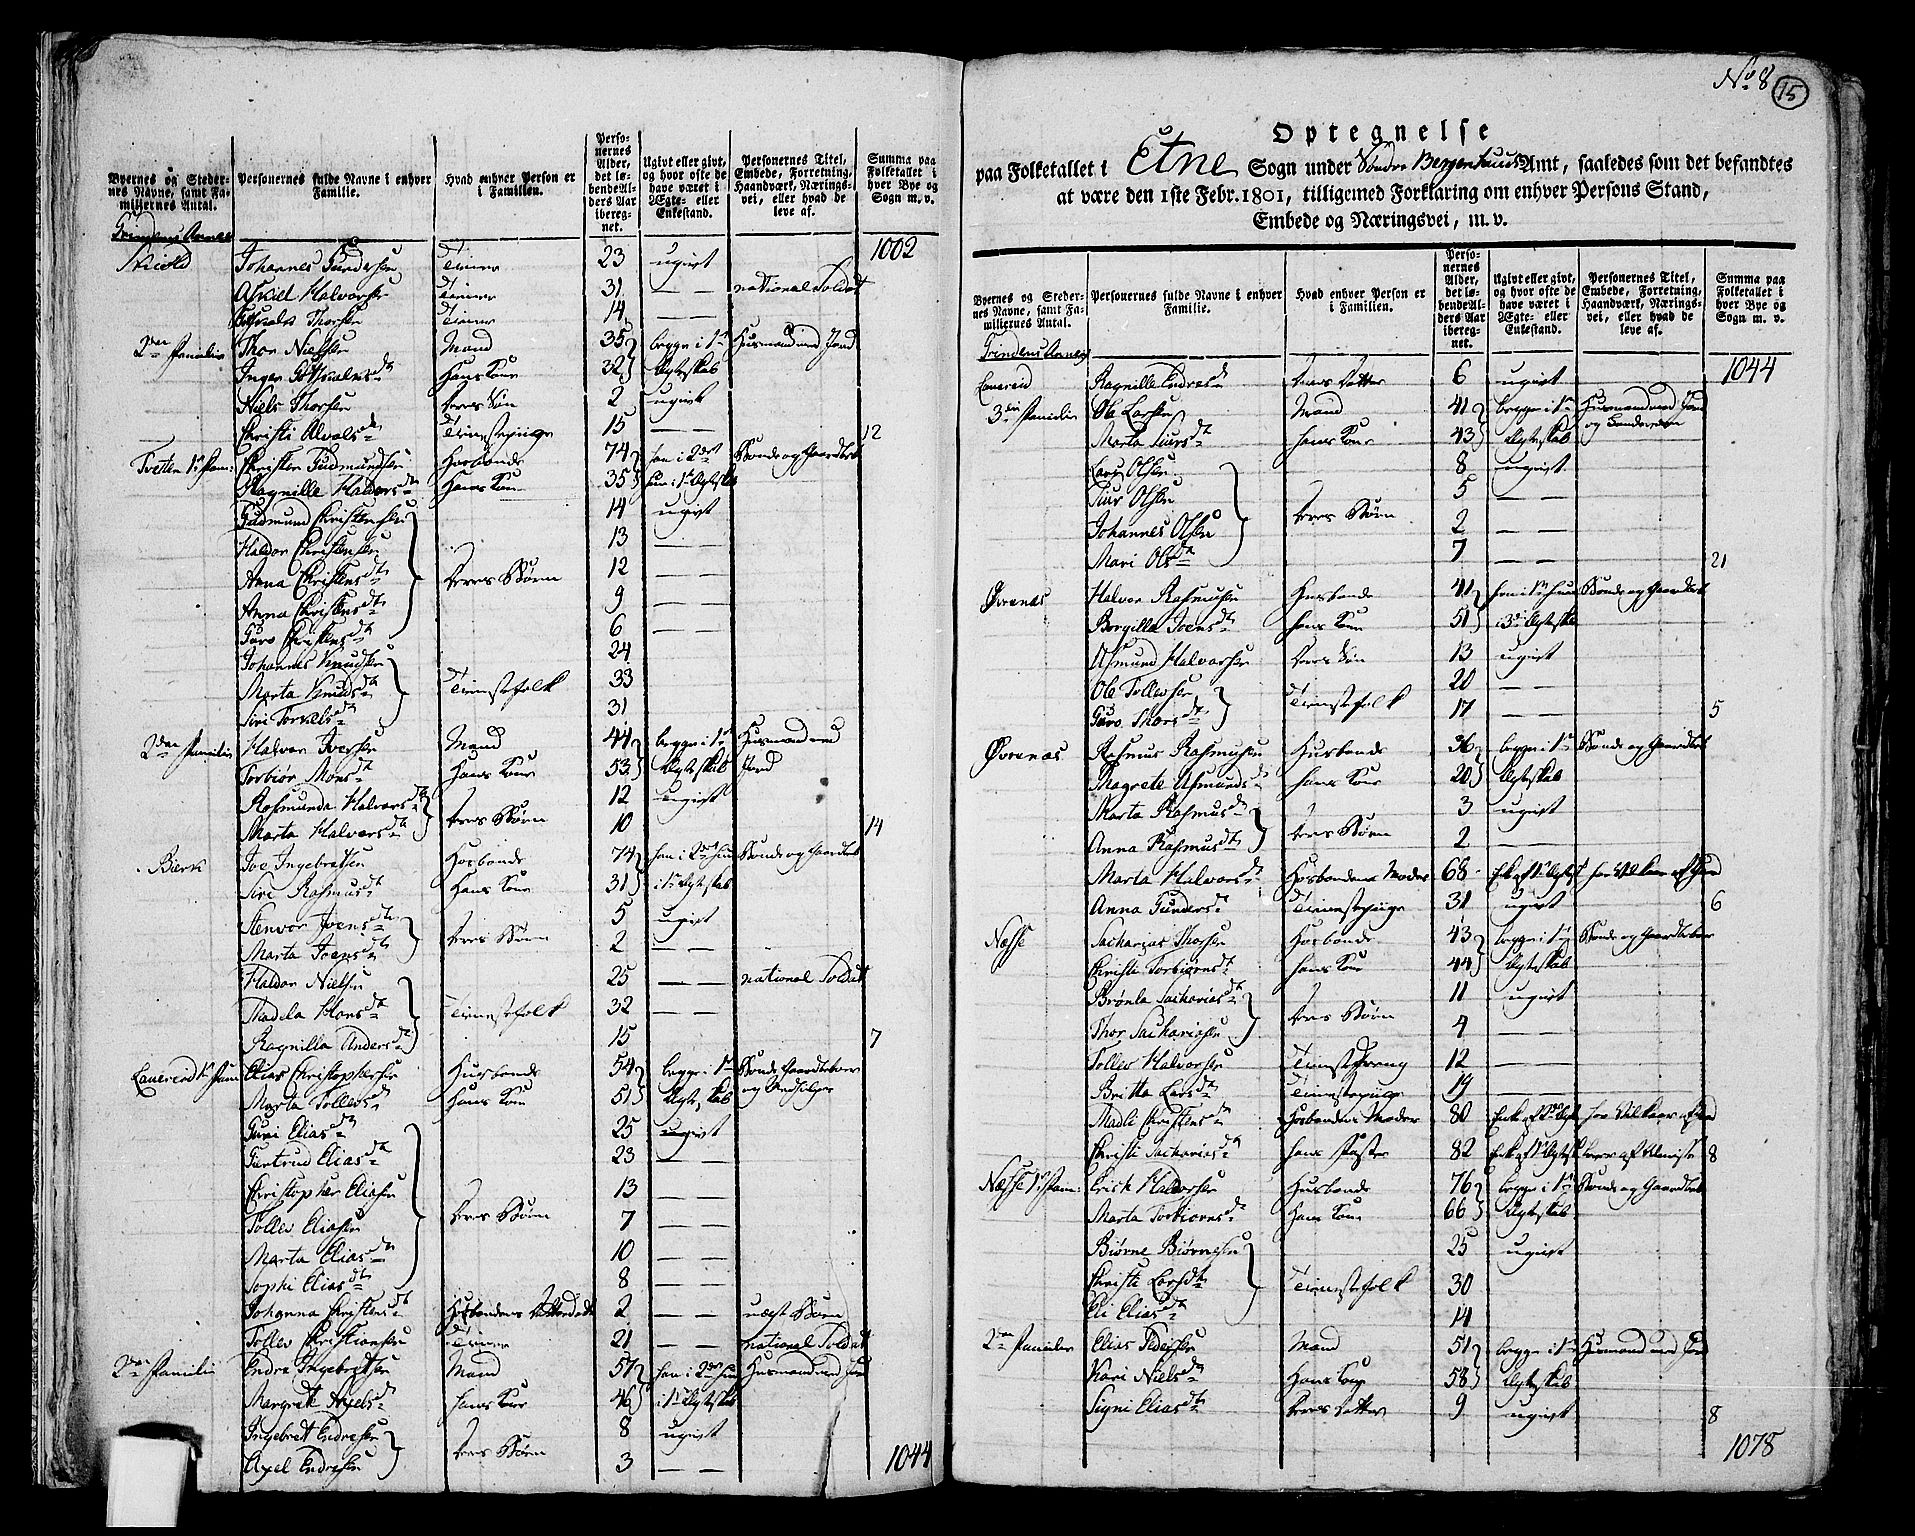 Byernes og Steder-
nes Navne, samt Fa-
miliernes Antal.
Personernes fulde Navne i enhver
Familie.
Hvad enhver Person er
i Familien.
Perso-
nernes
Alder,
det lø-
bende Al-
ders Aar
ibereg-
net.
Ugivt eller givt,
og hvor ofte de
have været i
Ægte- eller
Enkestand.
Personernes Titel,
Embede, Forretning,
Haandværk, Nærings-
vei, eller hvad de
leve af.
Summa paa
Folketallet i
hver Bye og
Sogn m. v.
Grindens Annex
Johannes Gundersen Tiener 23 ugivt 1002
Askild Halvorsen Tiener 31 — — national Soldat
Thorsen Tiener 14 — —
2den Familie Thor Nielsen Mand 35 begge i 1ste Husmand med Jord
Inger Gotskalksdtr Hans Kone 32 Ægteskab
Niels Thorsen deres Søn 2 ugivt
Christi Alvalsdtr Tienestepige 15 — — 12
Tveiten 1ste Fam: Christen Gudmundsen Hosbonde 74 han i 2det Bonde og Gaardbeb
Ragnille Haldorsdtr Hans Kone 35 hun i 1ste Ægteskab
Gudmund Christensen 14 ugivt
Haldor Christensen 13 — —
Anna Christensdtr deres Børn 12 — —
Anna Christensdtr 9 — —
Guro Christensdtr 6 — —
Johannes Knudsen 24
Marta Knudsdtr Tienestefolk 33
Siri Torkelsdtr 31
2den Familie Halvor Iversen Mand 44 begge i 1ste Husmand med
Torbiør Monsdtr Hans Kone 53 Ægteskab Jord
Rasmunda Halvorsdtr 12 ugivt
Marta Halvorsdtr deres Børn 10 14
Bierk Joe Ingebretsen Hosbonde 74 han i 2det hun Bonde og Gaardbeb
Siri Rasmusdtr Hans Kone 31 i 1ste Ægteskab
Stenvor Joensdtr 5 ugivt
Marta Joensdtr deres Børn 2 — —
Haldor Nielsen 25 — — national Soldat
Madela Hansdtr Tienestefolk 32 — —
Ragnilla Andersdtr 15 — — 7
Lauereid 1ste Fam Elias Christophersen Husbonde 54 begge i 1ste Bonde Gaardbeboer
Marta Tollevsdtr Hans Kone 51 Ægteskab
Guri Eliasdtr 25 ugivt
Giertrud Eliasdtr 23 — —
Christopher Eliasen 13 — —
Tollev Eliasen deres Børn 7 — —
Marta Eliasdtr 10 — —
Sophi Eliasdtr 8 — —
Johanna Christensdtr Husbondens Datterdatter 2 — — uægt Barn
Tollev Christiansen Tiener 21 — — national Soldat
2den Familie Endre Ingebretsen Mand 57 han i 2det hun Husmand med Jord
Margrett Axelsdtr Hans Kone 46 i 1ste Ægteskab
Ingebret Endresen 8 ugivt
Axel Endresen deres Børn 3 — — 1044
No 8 15
Optegnelse
paa Folketallet i Etne Sogn under Søndre Bergenhuus Amt, saaledes som det befandtes
at være den 1ste Febr. 1801, tilligemed Forklaring om enhver Persons Stand,
Embede og Næringsvei, m. v.
Byernes og Steder-
nes Navne, samt Fa-
miliernes Antal.
Personernes fulde Navne i enhver
Familie.
Hvad enhver Person er
i Familien.
Perso-
nernes
Alder,
det lø-
bende Al-
ders Aar
ibereg-
net.
Ugivt eller givt,
og hvor ofte de
have været i
Ægte- eller
Enkestand.
Personernes Titel,
Embede, Forretning,
Haandværk, Nærings-
vei, eller hvad de
leve af.
Summa paa
Folketallet i
hver Bye og
Sogn m. v.
Grindens Annex
Lauereid Ragnille Endresdtr deres Datter 6 ugivt 1044
3die Familie Ole Larsen Mand 41 begge i 1ste Husmand med Jord
Marta Siursdtr hans Kone 43 Ægteskab
Lars Olsen 8 ugivt
Siur Olsen 5 — —
Johannes Olsen deres Børn 2 — —
Mari Olsdtr 7 — — 21
Øvrenas Halvor Rasmusen Husbonde 41 han i 1ste hun Bonde og Gaardbeb
Borgilla Joensdtr hans Kone 51 i 3die Ægteskab
Asmund Halvorsen deres Søn 13 ugivt
Ole Tollevsen 20 — —
Guro Thorsdtr Tienestefolk 17 — — 5
Øvrenas Rasmus Rasmusen Husbonde 36 begge i 1ste Bonde og Gaardbeb
Magrete Asmundsdtr hans Kone 20 Ægteskab
Marta Rasmusdtr 3 ugivt
Anna Rasmusdtr deres Børn 2 — —
Marta Halvorsdtr Hosbondens Moder 68 Enke af 1ste Ægtesk har Vilkaar af Jord
Anna Gundersdtr Tienestepige 31 ugivt 6
Næsse Sacharias Thorsen Hosbonde 43 begge i 1ste Bonde og Gaardbeboer
Christi Torbiørnsdtr hans Kone 44 Ægteskab
Brønla Sachariasdtr 11 ugivt
Thor Sachariasen deres Børn 4 — —
Tollev Halvorsen Tienestedreng 12 — —
Britta Larsdtr Tienestepige 19 — —
Madli Christensdtr Hosbondens Moder 80 har Vilkaar af Jord
Christi Sachariasdtr hans Faster 82 Enke af 1ste Ægtesk lever af Almisse 8
Næsse 1ste Fam: Erich Haldorsen Husbonde 76 begge i 1ste Bonde og Gaardbeb
Marta Torbiørnsdtr Hans Kone 66 Ægteskab
Biørne Biørnesen 25 ugivt
Christi Larsdtr Tienestefolk 30
Eli Eliasdtr 14
2den Familie Elias Pedersen Mand 51 begge i 1ste Husmand med Jord
Kari Nielsdtr Hans Kone 58 Ægteskab
Signi Eliasdtr deres Datter 9 ugivt 8
1078